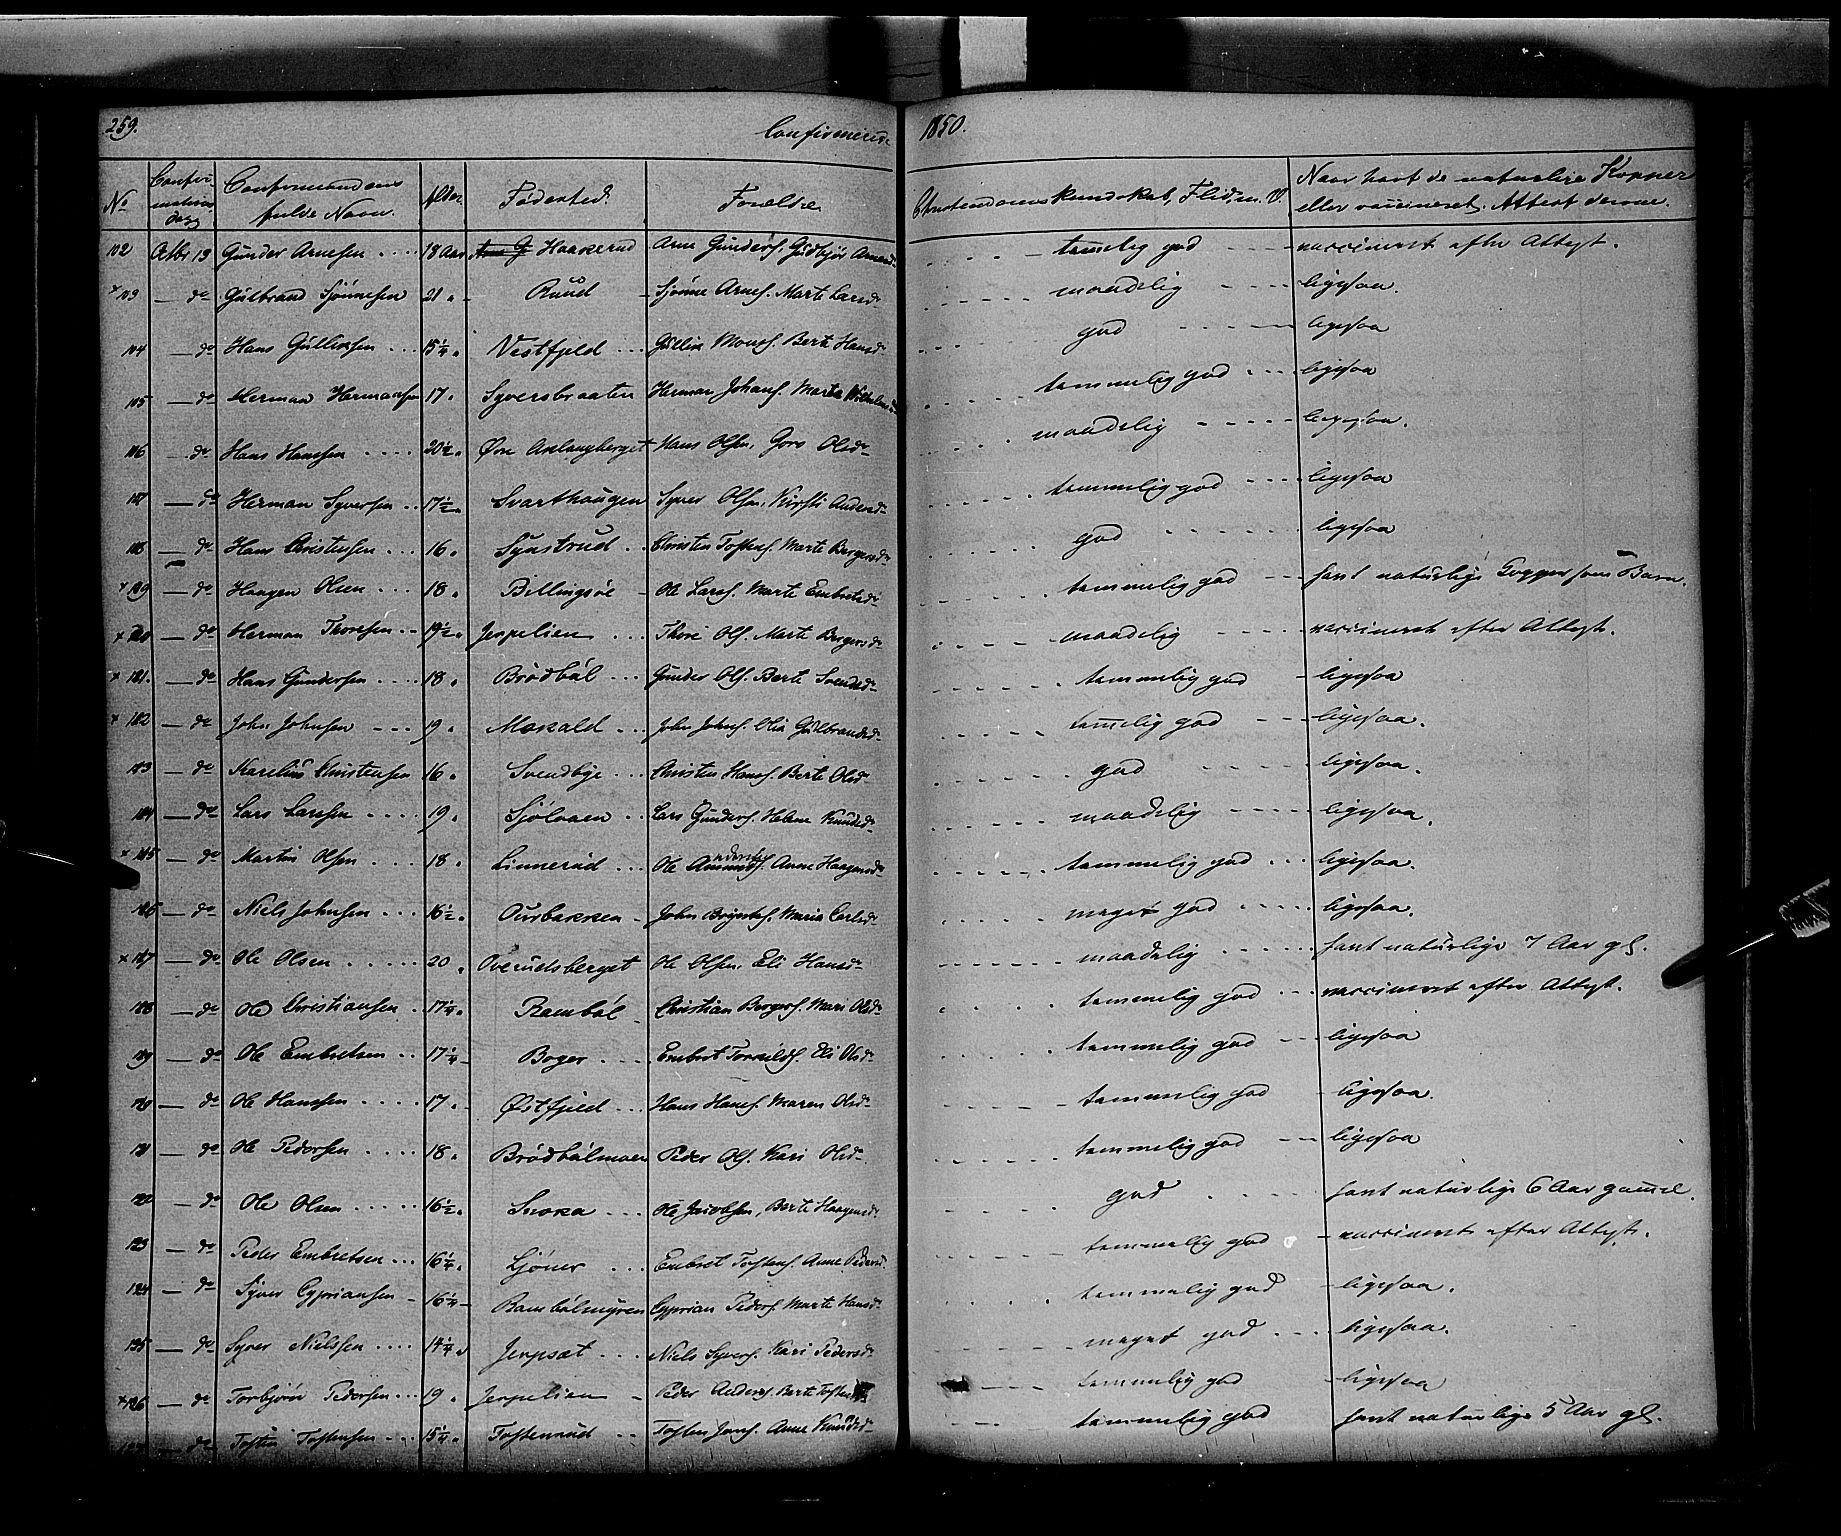 259. Confirmerede 1850.
No Confirmations Dag Confirmandens fulde Navn. Alder Födested. Forældre Christendoms kundskab, Flid, m. V. Naar havt de naturlige Kopper eller vaccineret. Attest derom.
102 Octbr 13 Gunder Arnesen .... 18 Aar Haakerud Arne Gunders. Gudbjör tammelig god vaccineret efter Attest.
+ 103 — do Gulbrand Sjönnesen 21 " Ruud Sjönne Arnes. Marte Larsd. maadelig ligesaa.
104 — do Hans Gulliksen ... 15 1/4 " Vestfjeld ... Gullik Mons. Berte Hansd. god ligesaa
105 — do Herman Hermansen 17 " Syversbraaten Herman Johans. Marte tammelig god ligesaa
106 — do Hans Hansen .... 20 1/2 " Øvre Aslaugberget Hans Olsen, Goro Olsd. maadelig ligesaa.
107 — do Herman Syversen .. 17 1/2 " Svarthaugen Syver Olsen, Kirsti Andersd. tammelig god ligesaa
108 — do Hans Christensen ... 16 " Synstrud .. Christen Tostens. Marte Bergersd. god ligesaa
+ 109 — do Haagen Olsen ... 18 " Billingsöe Ole Larss. Marte Embretsd. tammelig god havt naturlige Kopper som Barn.
+ — do Herman Thoresen .. 19 1/2 " Jerpelien ... Thore Ols. Marte Bergersd. maadelig vaccineret efter Attest.
+ — do Hans Gundersen .... 18 " Brödböl ... Gunder Ols. Berte Svendsd. tammelig god ligesaa
+ — do John Johnsen - - - 19 " Mokald ... John Johns. Olia Gulbrandsd. tammelig god ligesaa.
— do Karelius Christensen 16 " Svendbye ... Christen Hans. Berte Olsd. god ligesaa.
— do Lars Larsen .... 19 " Sjölvaen .. Lars Gunders. Helene Knudsd. maadelig ligesaa.
+ — do Martin Olsen .... 18 " Linnerud ... Ole Anne Haagensd. tammelig god ligesaa.
— do Niels Johnsen ... 16 1/2 " Ourbakken John Maria Carlsd. meget god ligesaa.
+ — do Ole Olsen ..... 20 " Overudsberget Ole Olsen, Eli Hansd. maadelig havt naturlige 7 Aar gl.
— do Ole Christiansen . 17 1/4 " Ramböl Christian Bergers. Mari Olsd. tammelig god vaccineret efter Attest.
— do Ole Embretsen .. 17 1/4 Boger ... Embret Torkilds. Eli Olsd. tammelig god ligesaa
— do Ole Hansen ..... 17 " Østfjeld ... Hans Hans. Maren Olsd. tammelig god ligesaa.
— do Ole Pedersen .... 18 " Brödbölmoen Peder Ols. Kari Olsd. tammelig god ligesaa
— do Ole Olsen ..... 16 1/2 " Snoka ... Ole Jacobsen, Berte Haagensd. god havt naturlige 6 Aar gamel.
123 — do Peder Embretsen ... 16 1/4 " Ljöner ... Embret Tostens. Anne Pedersd. tammelig god vaccineret efter Attest.
124 — do Syver Cypriansen 16 1/4 Rambölmyren Cyprian Peders. Marte Hansd. tammelig god ligesaa.
— do Syver Nielssen .... 14 1/4 " Jerpset ... Niels Syvers. Kari Pedersd. meget god ligesaa.
+ 126 — do Torbjörn Pedersen ... 19 " Jerpelien Peder Anders. Berte tammelig god ligesaa
— do Tosten Tostensen ... 15 1/4 " Tostenrud .. Tosten Jons. Anne Knudsd. tammelig god havt naturlige 5 Aar gl.